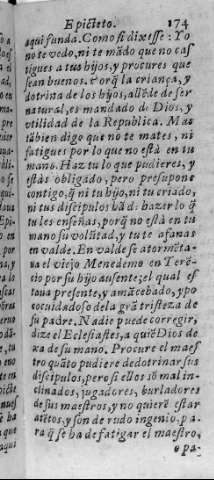 Epicteto. 174
aqui funda. Como si dixesse: Yo
no te vedo, ni te mãdo que no cas
tigues a tus hijos, y procures que
sean buenos. Porq̃ la criança, y
dotrina de los hijos, allẽde de ser
natural, es mandado de Dios, y
vtilidad de la Republica. Mas
tãbien digo que no te mates, ni
fatigues por lo que no està en tu
mano. Haz tu lo que pudieres, y
estàs obligado, pero presupone
contigo, q̃ ni tu hijo, ni tu criado,
ni tus discipulos hã de hazer lo q̃
tu les enseñas, porq̃ no està en tu
mano su volũtad, y tu te afanas
en valde. En valde se atormẽta-
ua el viejo Menedemo en Terẽ-
cio por su hijo ausente; el qual es
taua presente, y amãcebado, y po
co cuidadoso de la grã tristeza de
su padre. Nadie puede corregir,
dize el Eclesiastes, a quiẽ Dios de
xa de su mano. Procure el maes
tro quãto pudiere dedotrinar sus
discipulos, pero si ellos sõ mal in-
clinados, jugadores, burladores
de sus maestros, y no quierẽ estar
atẽtos, y son de rudo ingenio, pa
ra q̃ se ha de fatigar el maestro,
o pa-